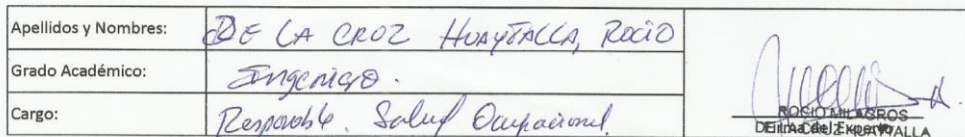 Apellidos y Nombres: DE LA CROZ HUAYTALLA, ROCIO
Grado Académico: Ingeniero.
Cargo: Responsable. Salud Ocupacional
ROCIO MILAGROS
DE LA CRUZ HUAYTALLA
Firma del Experto